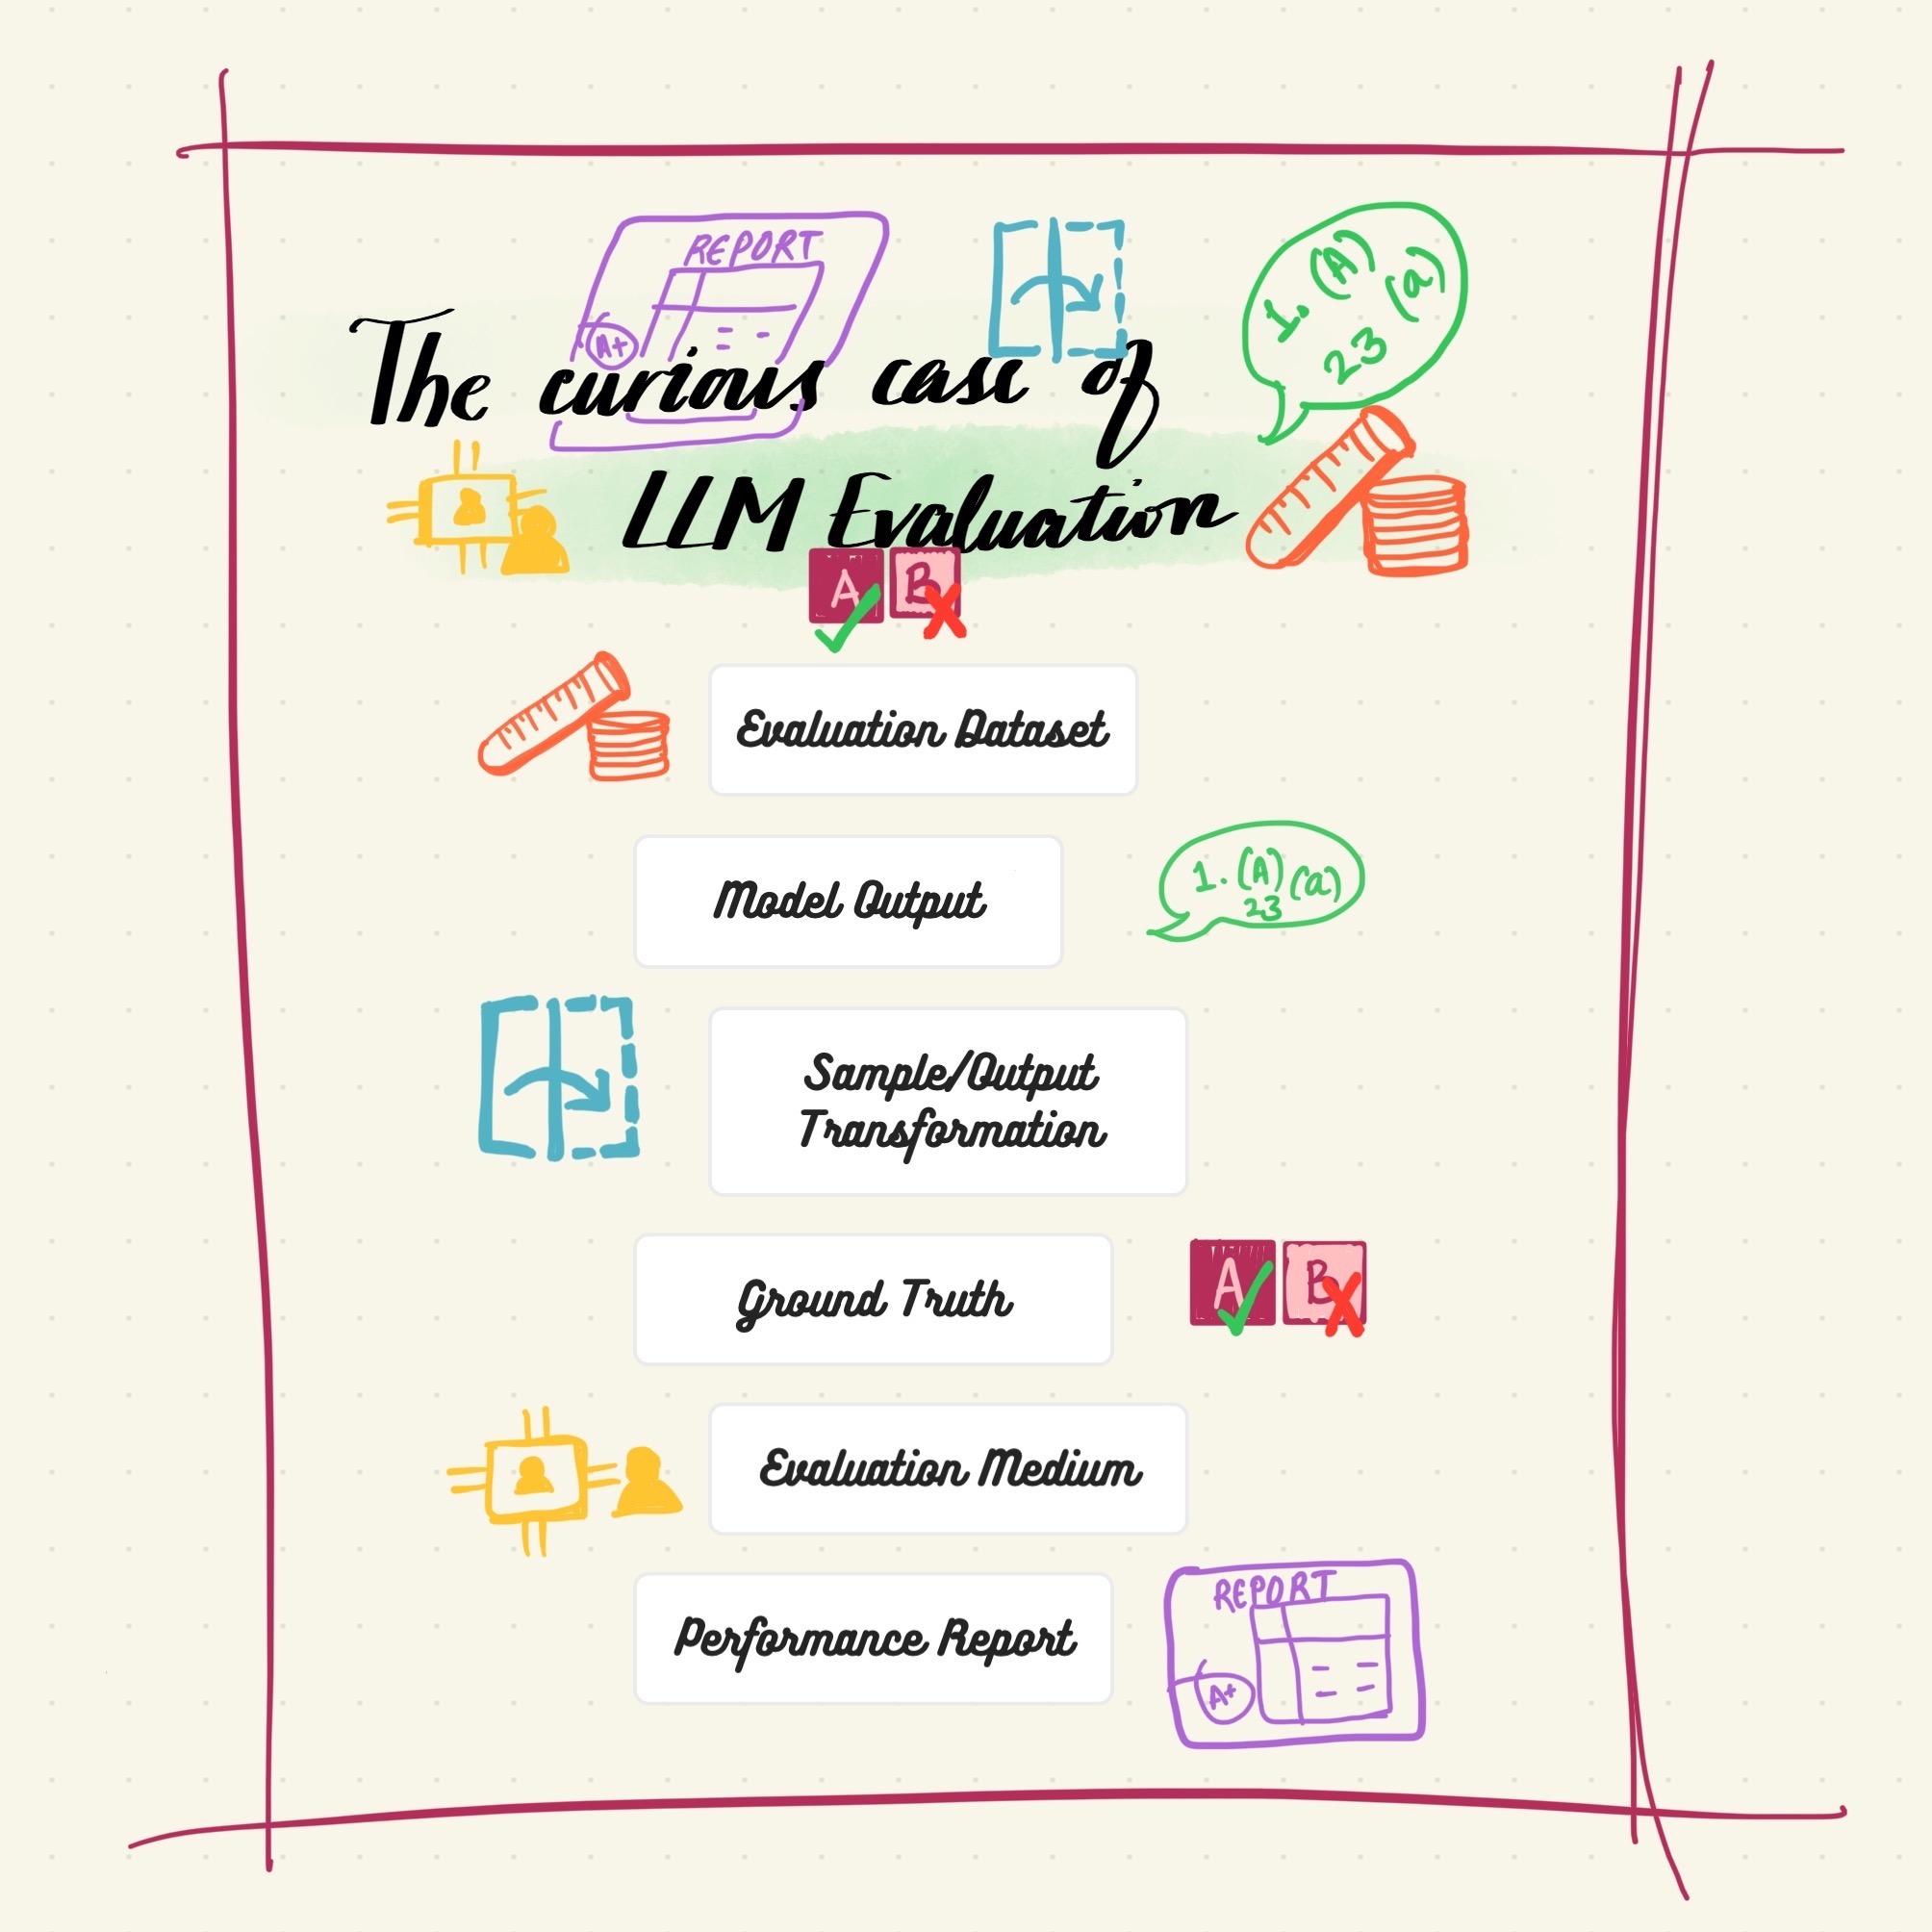 REPORT
A+
1. (A) (a)
23
The curious case of
LLM Evaluation
A B
Evaluation Dataset
Model Output
1. (A) (a)
23
Sample/Output
Transformation
Ground Truth
A B
Evaluation Medium
Performance Report
REPORT
A+